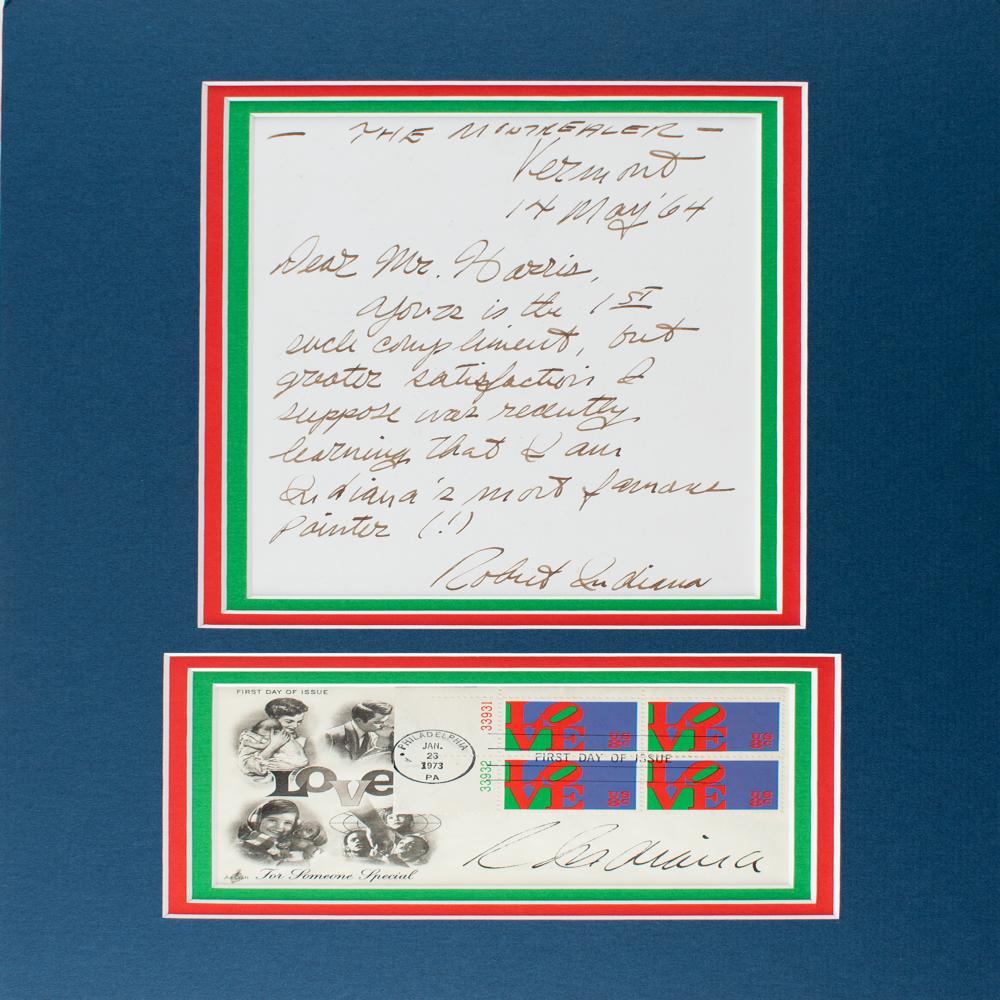 — THE MONTREALER —
Vermont
14 May '64
Dear Mr. Harris,
Yours is the 1ST
such compliment, but
greater satisfaction I
suppose was recently
learning that I am
Indiana's most famous
Painter (!)
Robert Indiana
FIRST DAY OF ISSUE
LOVE
For Someone Special
PHILADELPHIA
JAN.
23
1973
PA
33931
33932
FIRST DAY OF ISSUE
LO
VE
US
8c
LO
VE
US
8c
LO
VE
US
8c
LO
VE
US
8c
R Indiana